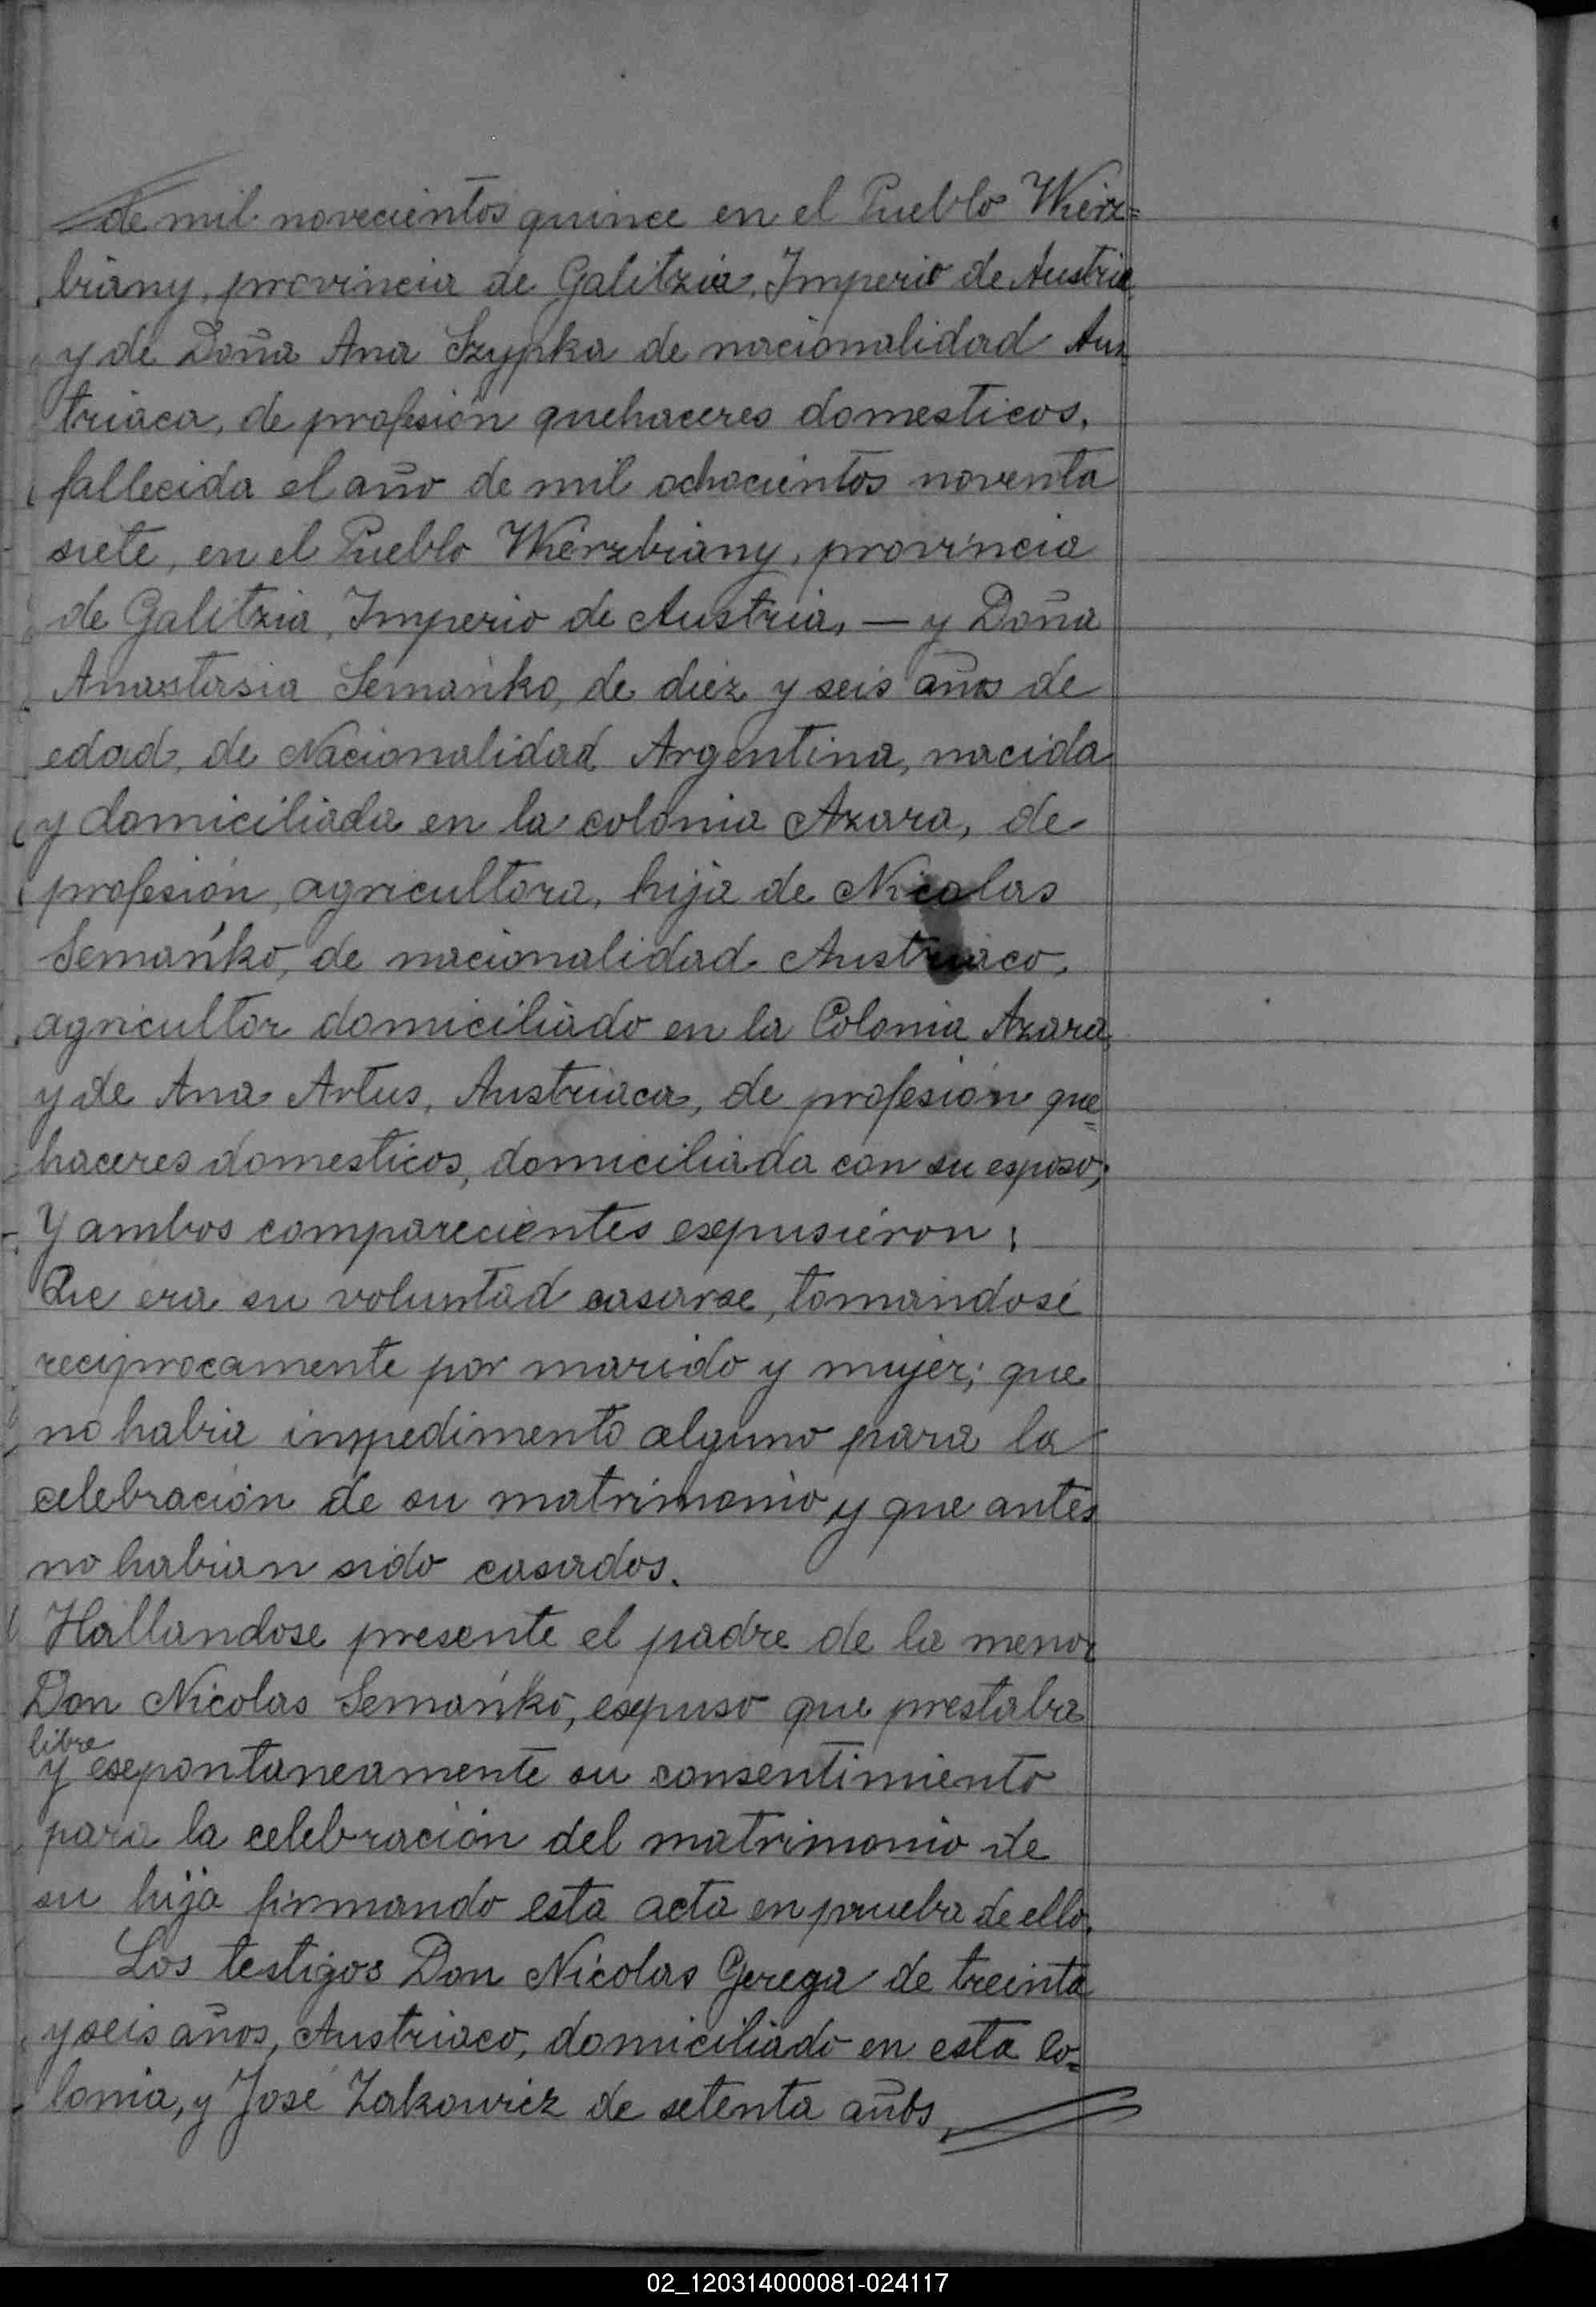 de mil novecientos quince en el Pueblo Wierz=
biany, provincia de Galitzia, Imperio de Austria
y de Doña Ana Szypka de nacionalidad Aus
triaca, de profesión quehaceres domesticos,
fallecida el año de mil ochocientos noventa
siete, en el Pueblo Wierzbiany, provincia
de Galitzia, Imperio de Austria, — y Doña
Anastasia Semańko, de diez y seis años de
edad, de Nacionalidad Argentina, nacida
y domiciliada en la colonia Azara, de
profesión, agricultora, hija de Nicolas
Semańko, de nacionalidad Austriaco,
agricultor domiciliado en la Colonia Azara,
y de Ana Artus, Austriaca, de profesión que=
haceres domesticos, domiciliada con su esposo;
Y ambos comparecientes esepusieron:
Que era su voluntad casarse, tomandose
reciprocamente por marido y mujer; que
no habia impedimento alguno para la
celebración de su matrimonio y que antes
no habian sido casados.
Hallandose presente el padre de la menor
Don Nicolas Semańko, esepuso que prestaba
libre
y esepontaneamente su consentimiento
para la celebración del matrimonio de
su hija firmando esta acta en prueba de ello.
Los testigos Don Nicolas Gerega de treinta
y seis años, Austriaco, domiciliado en esta Co=
lonia, y José Zakowicz de setenta años,
02_120314000081-024117